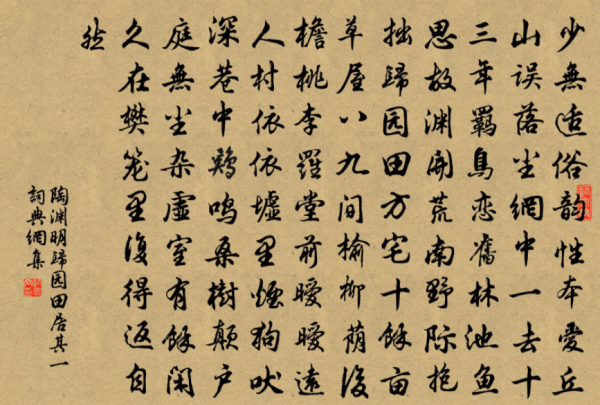 少無适俗韵性本愛丘
山误落尘網中一去十
三年羈鳥恋舊林池魚
思故渊開荒南野际抱
拙歸园田方宅十餘亩
草屋八九间榆柳荫後
檐桃李羅堂前曖曖遠
人村依依墟里煙狗吠
深巷中鷄鸣桑樹顛户
庭無尘杂虚室有餘閑
久在樊笼里復得返自
然
陶渊明歸园田居其一
詞典網集